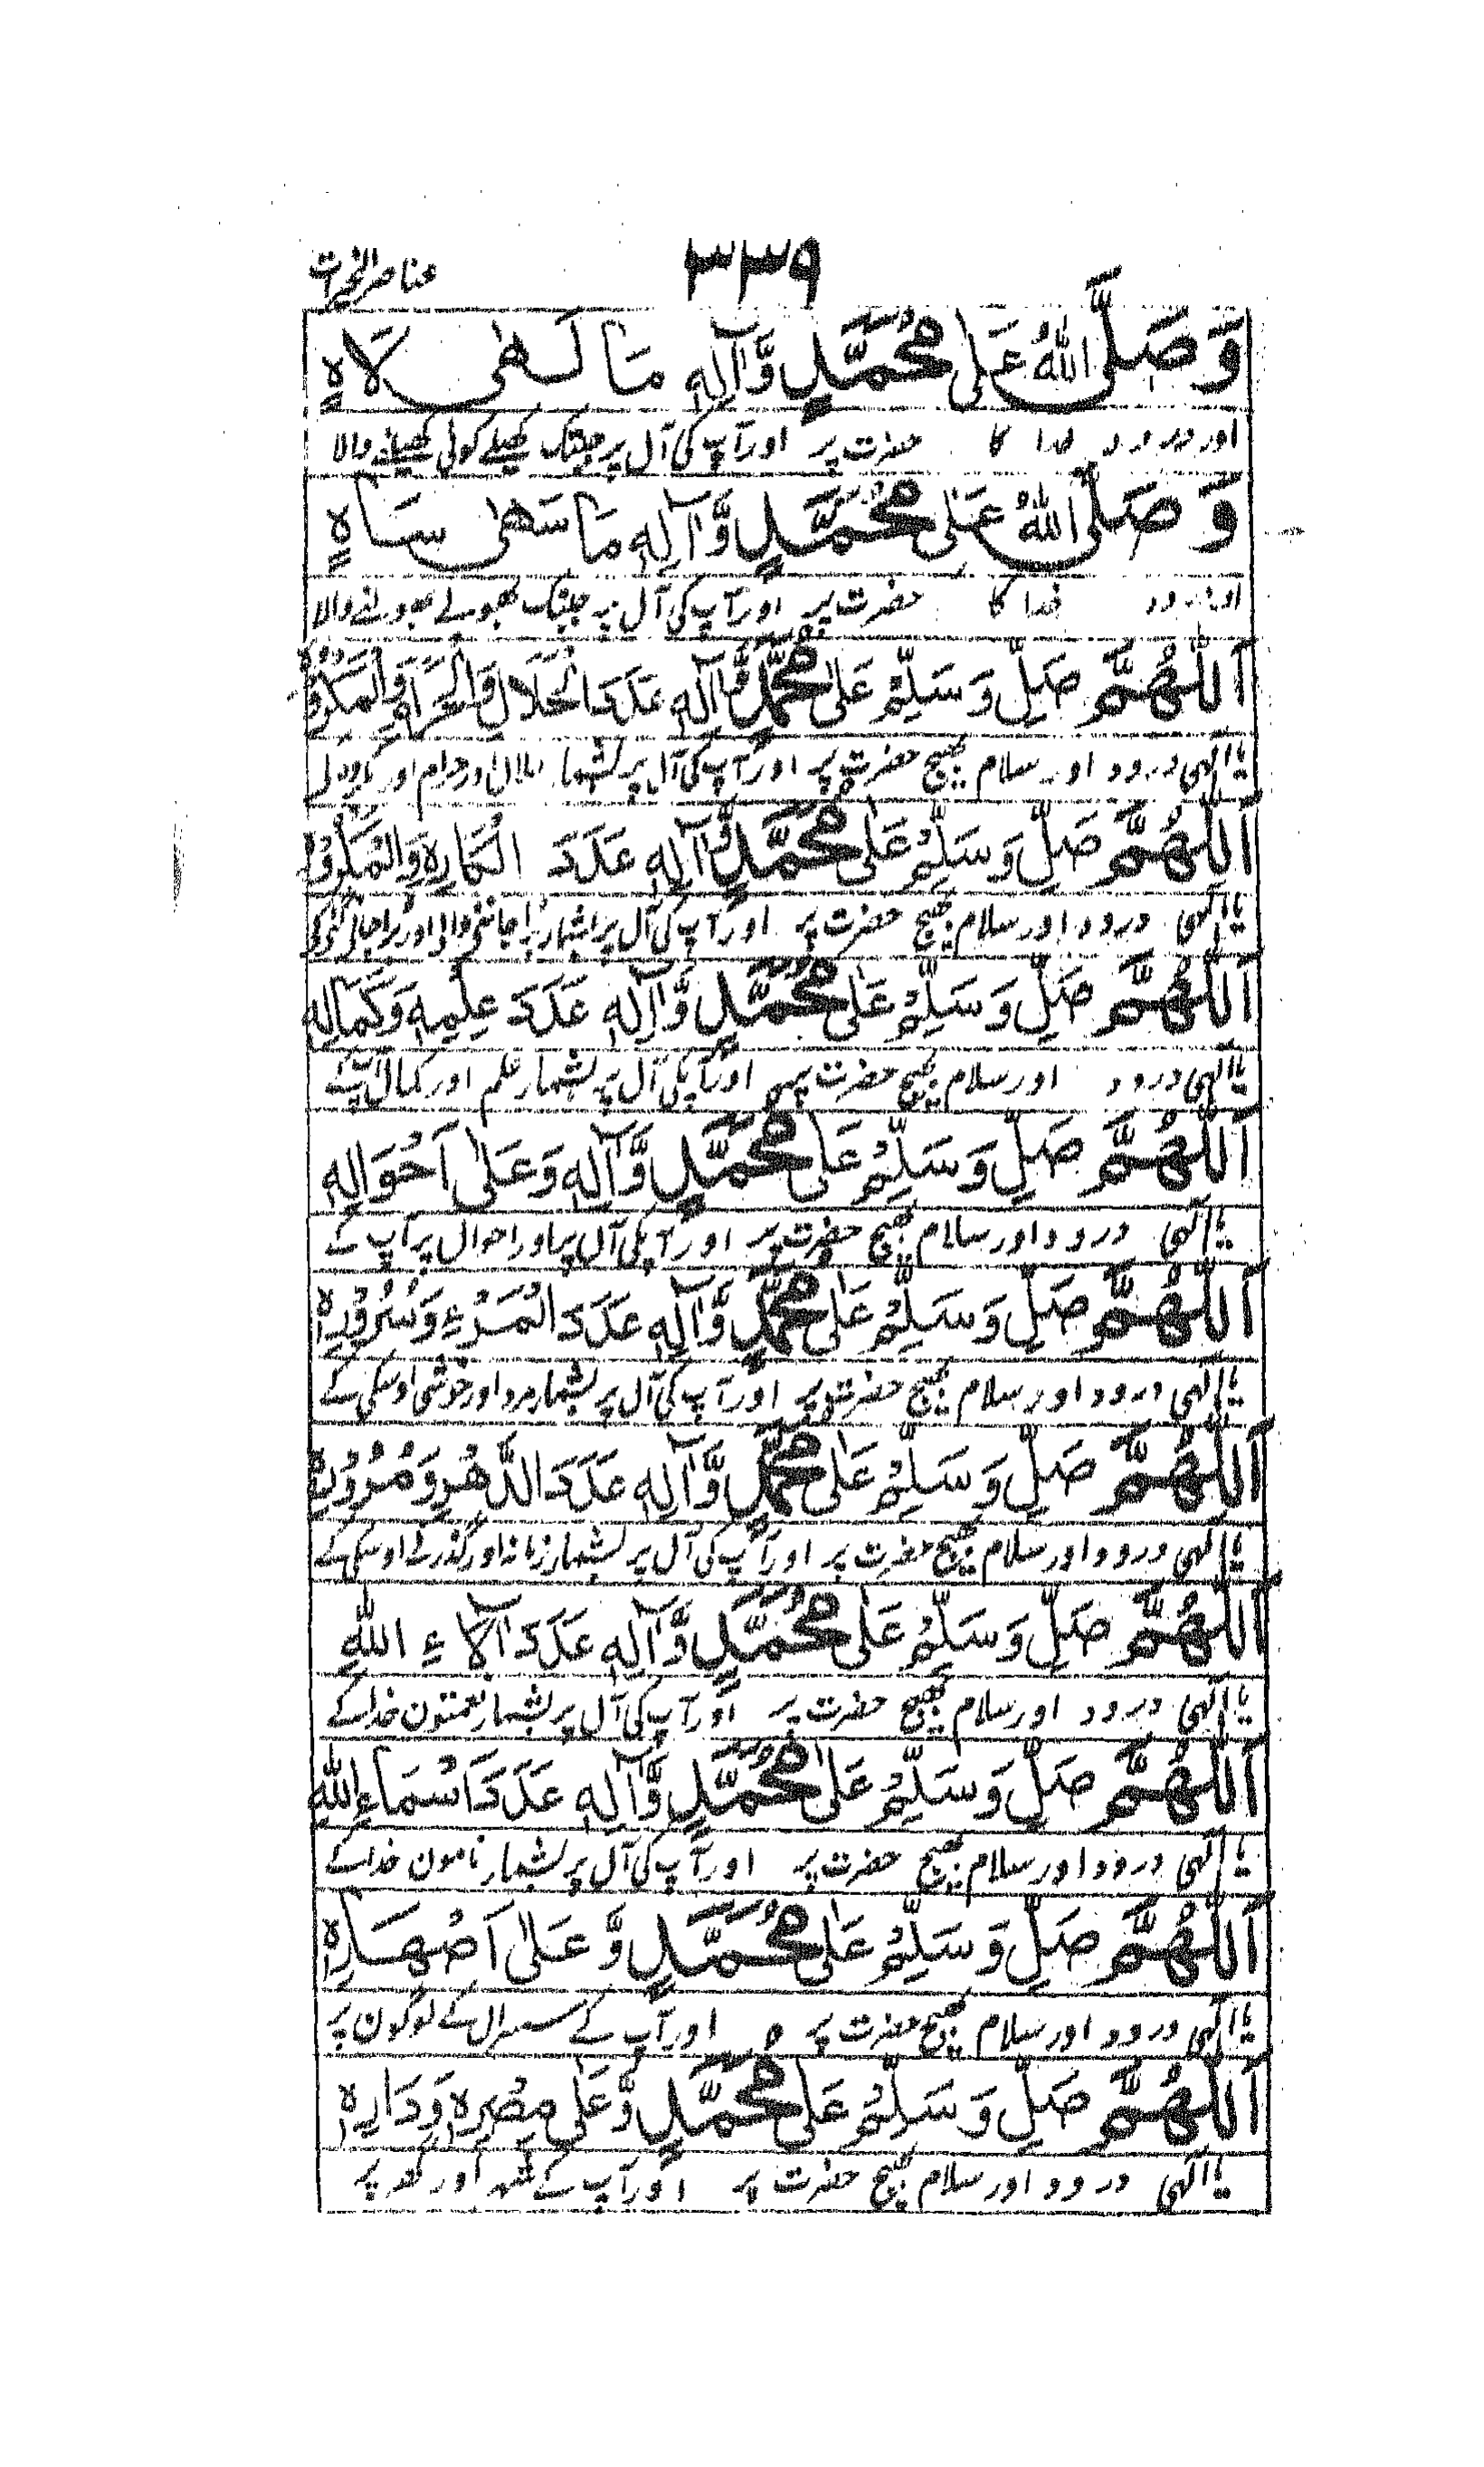 عناصر الخیرات
۳۳۹
وَصَلَّى اللّٰهُ عَلٰى مُحَمَّدٍ وَّاٰلِهٖ مَا لَهٰى لَاهٍ
اور درود خدا کا حضرت پر اور آپ کی آل پر جبتک کھیلے کوئی کھیلنے والا
وَصَلَّى اللّٰهُ عَلٰى مُحَمَّدٍ وَّاٰلِهٖ مَا سَهٰى سَاهٍ
اور درود خدا کا حضرت پر اور آپ کی آل پر جبتک بھولے بھولنے والا
اَللّٰهُمَّ صَلِّ وَسَلِّمْ عَلٰى مُحَمَّدٍ وَّاٰلِهٖ عَدَدَ الْحَلَالِ وَالْحَرَامِ وَالْمَكْرُوْهِ
یا الٰہی درود اور سلام بھیج حضرت پر اور آپ کی آل پر بشمار حلال اور حرام اور
اَللّٰهُمَّ صَلِّ وَسَلِّمْ عَلٰى مُحَمَّدٍ وَّاٰلِهٖ عَدَدَ الْكَارِهِ وَالْمَكْرُوْهِ
یا الٰہی درود اور سلام بھیج حضرت پر اور آپ کی آل پر بشمار برا جاننے والی اور برا جانی گئی کی
اَللّٰهُمَّ صَلِّ وَسَلِّمْ عَلٰى مُحَمَّدٍ وَّاٰلِهٖ عَدَدَ عِلْمِهٖ وَكَمَالِهٖ
یا الٰہی درود اور سلام بھیج حضرت پر اور آپکی آل پر بشمار علم اور کمال آپ کے
اَللّٰهُمَّ صَلِّ وَسَلِّمْ عَلٰى مُحَمَّدٍ وَّاٰلِهٖ وَعَلٰى اَحْوَالِهٖ
یا الٰہی درود اور سلام بھیج حضرت پر اور آپکی آل پر اور احوال پر آپ کے
اَللّٰهُمَّ صَلِّ وَسَلِّمْ عَلٰى مُحَمَّدٍ وَّاٰلِهٖ عَدَدَ الْمَرْءِ وَسُرُوْرِهٖ
یا الٰہی درود اور سلام بھیج حضرت پر اور آپ کی آل پر بشمار مرد اور خوشی اوسکی کے
اَللّٰهُمَّ صَلِّ وَسَلِّمْ عَلٰى مُحَمَّدٍ وَّاٰلِهٖ عَدَدَ الدَّهْرِ وَمُرُوْرِهٖ
یا الٰہی درود اور سلام بھیج حضرت پر اور آپ کی آل پر بشمار زمانہ اور گذرنے اوسکے کے
اَللّٰهُمَّ صَلِّ وَسَلِّمْ عَلٰى مُحَمَّدٍ وَّاٰلِهٖ عَدَدَ اٰلَاءِ اللّٰهِ
یا الٰہی درود اور سلام بھیج حضرت پر اور آپ کی آل پر بشمار نعمتون خدا کے
اَللّٰهُمَّ صَلِّ وَسَلِّمْ عَلٰى مُحَمَّدٍ وَّاٰلِهٖ عَدَدَ اَسْمَاءِ اللّٰهِ
یا الٰہی درود اور سلام بھیج حضرت پر اور آپ کی آل پر بشمار نامون خدا کے
اَللّٰهُمَّ صَلِّ وَسَلِّمْ عَلٰى مُحَمَّدٍ وَّعَلٰى اَصْهَارِهٖ
یا الٰہی درود اور سلام بھیج حضرت پر اور آپ کے سسرال کے لوگون پر
اَللّٰهُمَّ صَلِّ وَسَلِّمْ عَلٰى مُحَمَّدٍ وَّعَلٰى مِصْرِهٖ وَدَارِهٖ
یا الٰہی درود اور سلام بھیج حضرت پر اور آپ کے شہر اور گھر پر